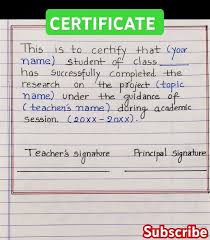 CERTIFICATE
This is to certify that (your
name) student of class ____
has successfully completed the
research on the project (topic
name) under the guidance of
(teacher's name) during academic
session. (20xx - 20xx).
Teacher's signature Principal signature
Subscribe